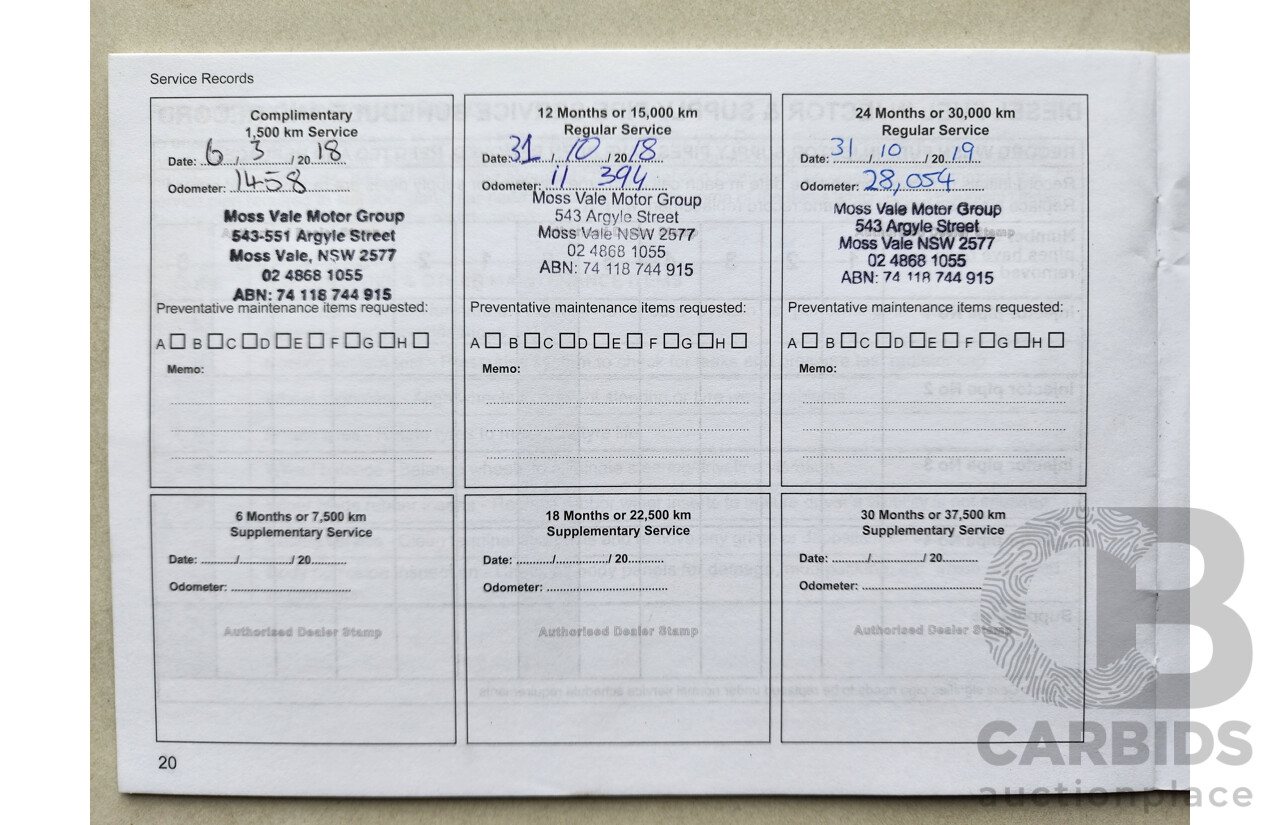 Service Records
Complimentary
1,500 km Service
Date: 6 / 3 / 20 18
Odometer: 1458
Moss Vale Motor Group
543-551 Argyle Street
Moss Vale, NSW 2577
02 4868 1055
ABN: 74 118 744 915
Preventative maintenance items requested:
A □ B □ C □ D □ E □ F □ G □ H □
Memo:
12 Months or 15,000 km
Regular Service
Date: 31 / 10 / 20 18
Odometer: 11 394
Moss Vale Motor Group
543 Argyle Street
Moss Vale NSW 2577
02 4868 1055
ABN: 74 118 744 915
Preventative maintenance items requested:
A □ B □ C □ D □ E □ F □ G □ H □
Memo:
24 Months or 30,000 km
Regular Service
Date: 31 / 10 / 20 19
Odometer: 28,054
Moss Vale Motor Group
543 Argyle Street
Moss Vale NSW 2577
02 4868 1055
ABN: 74 118 744 915
Preventative maintenance items requested:
A □ B □ C □ D □ E □ F □ G □ H □
Memo:
6 Months or 7,500 km
Supplementary Service
Date: ......../............../ 20............
Odometer: ....................................
Authorised Dealer Stamp
18 Months or 22,500 km
Supplementary Service
Date: ......../............../ 20............
Odometer: ....................................
Authorised Dealer Stamp
30 Months or 37,500 km
Supplementary Service
Date: ......../............../ 20............
Odometer: ....................................
Authorised Dealer Stamp
20
CB
CARBIDS
auctionplace